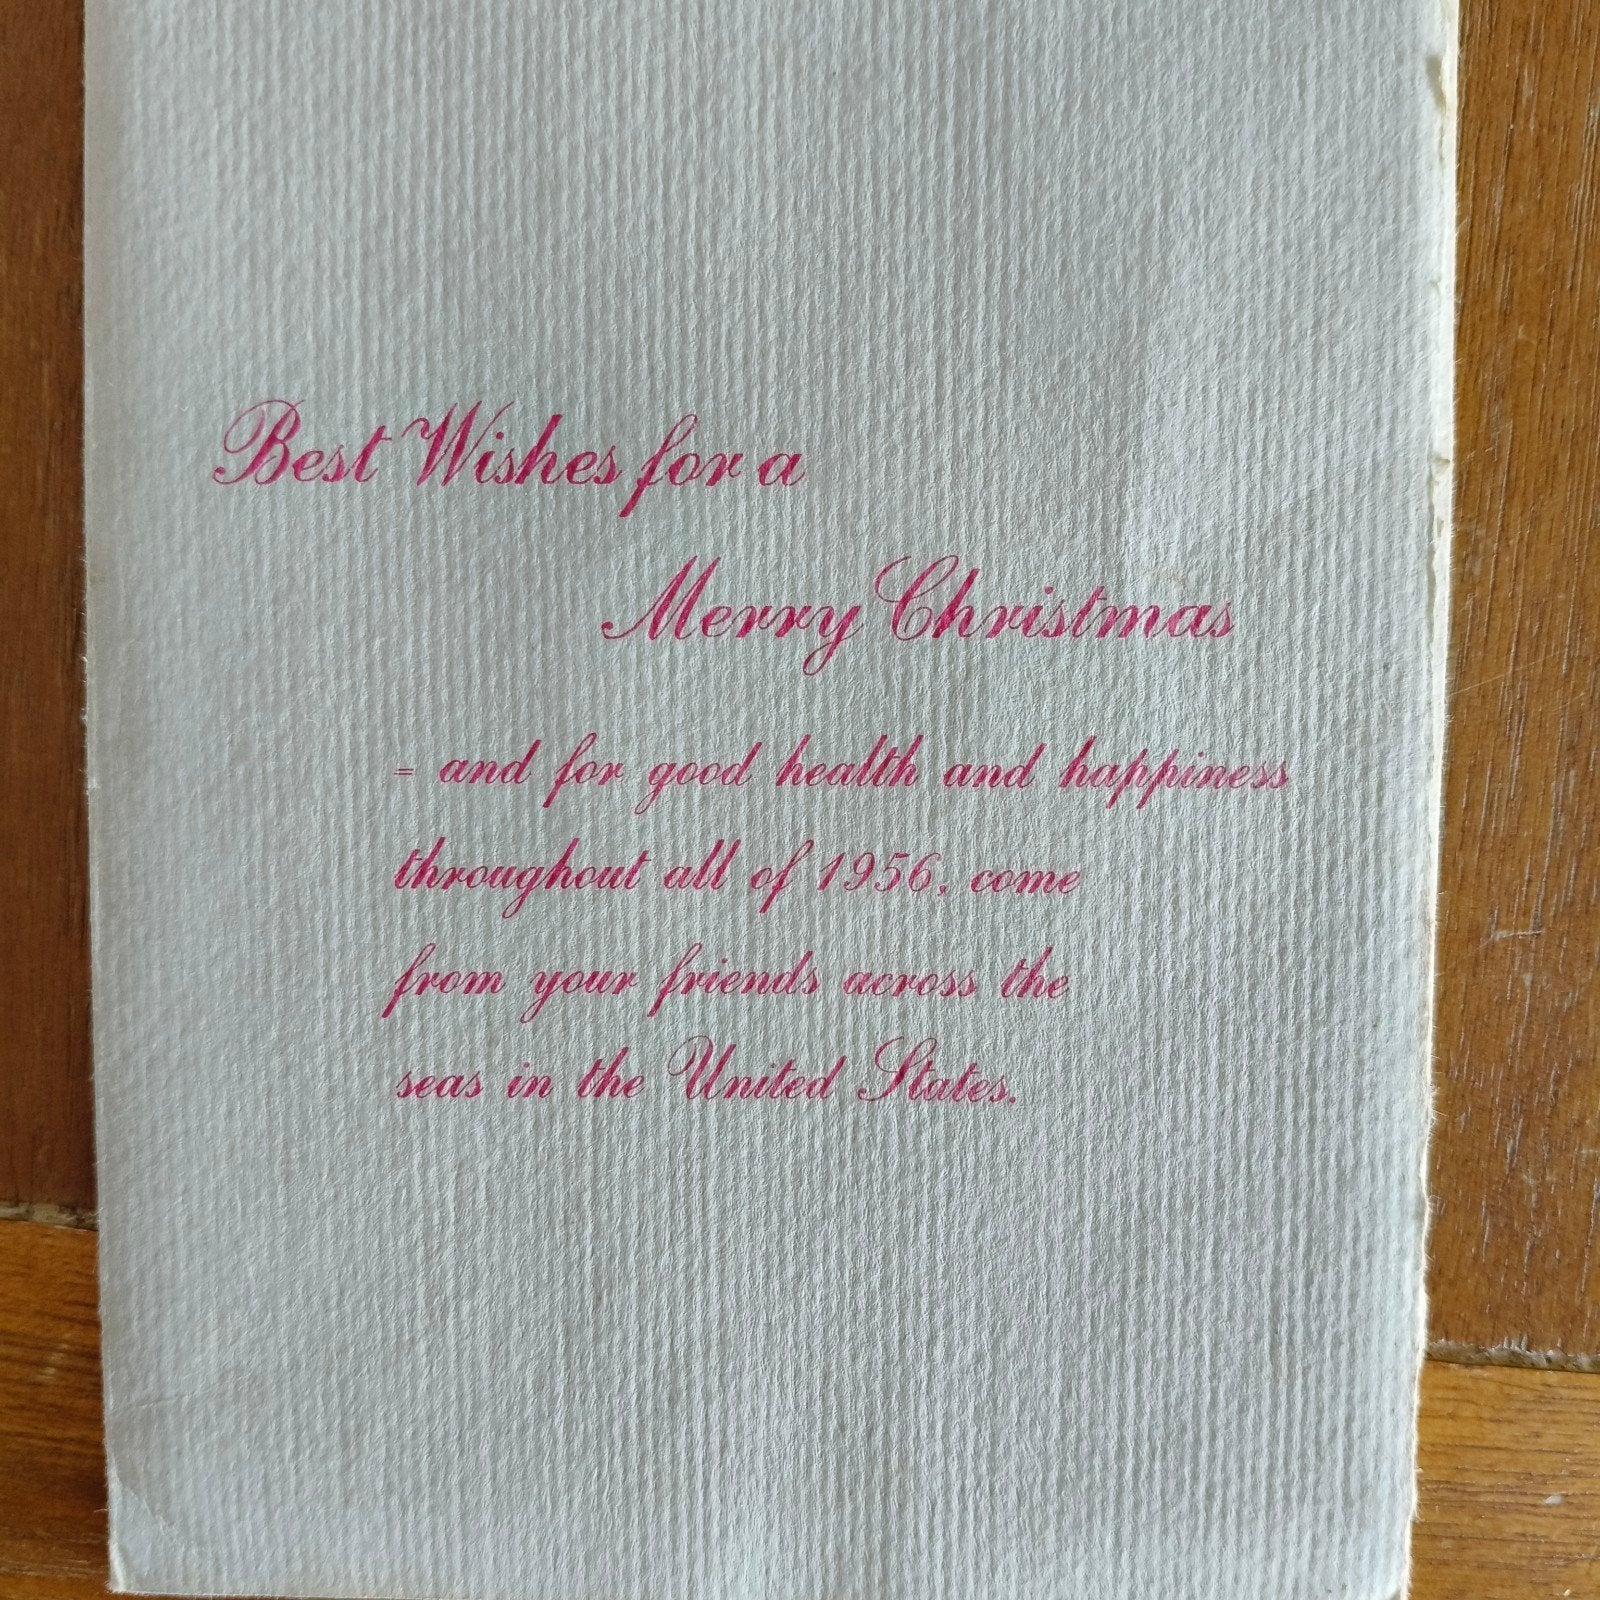 Best Wishes for a
Merry Christmas
= and for good health and happiness
throughout all of 1956, come
from your friends across the
seas in the United States.